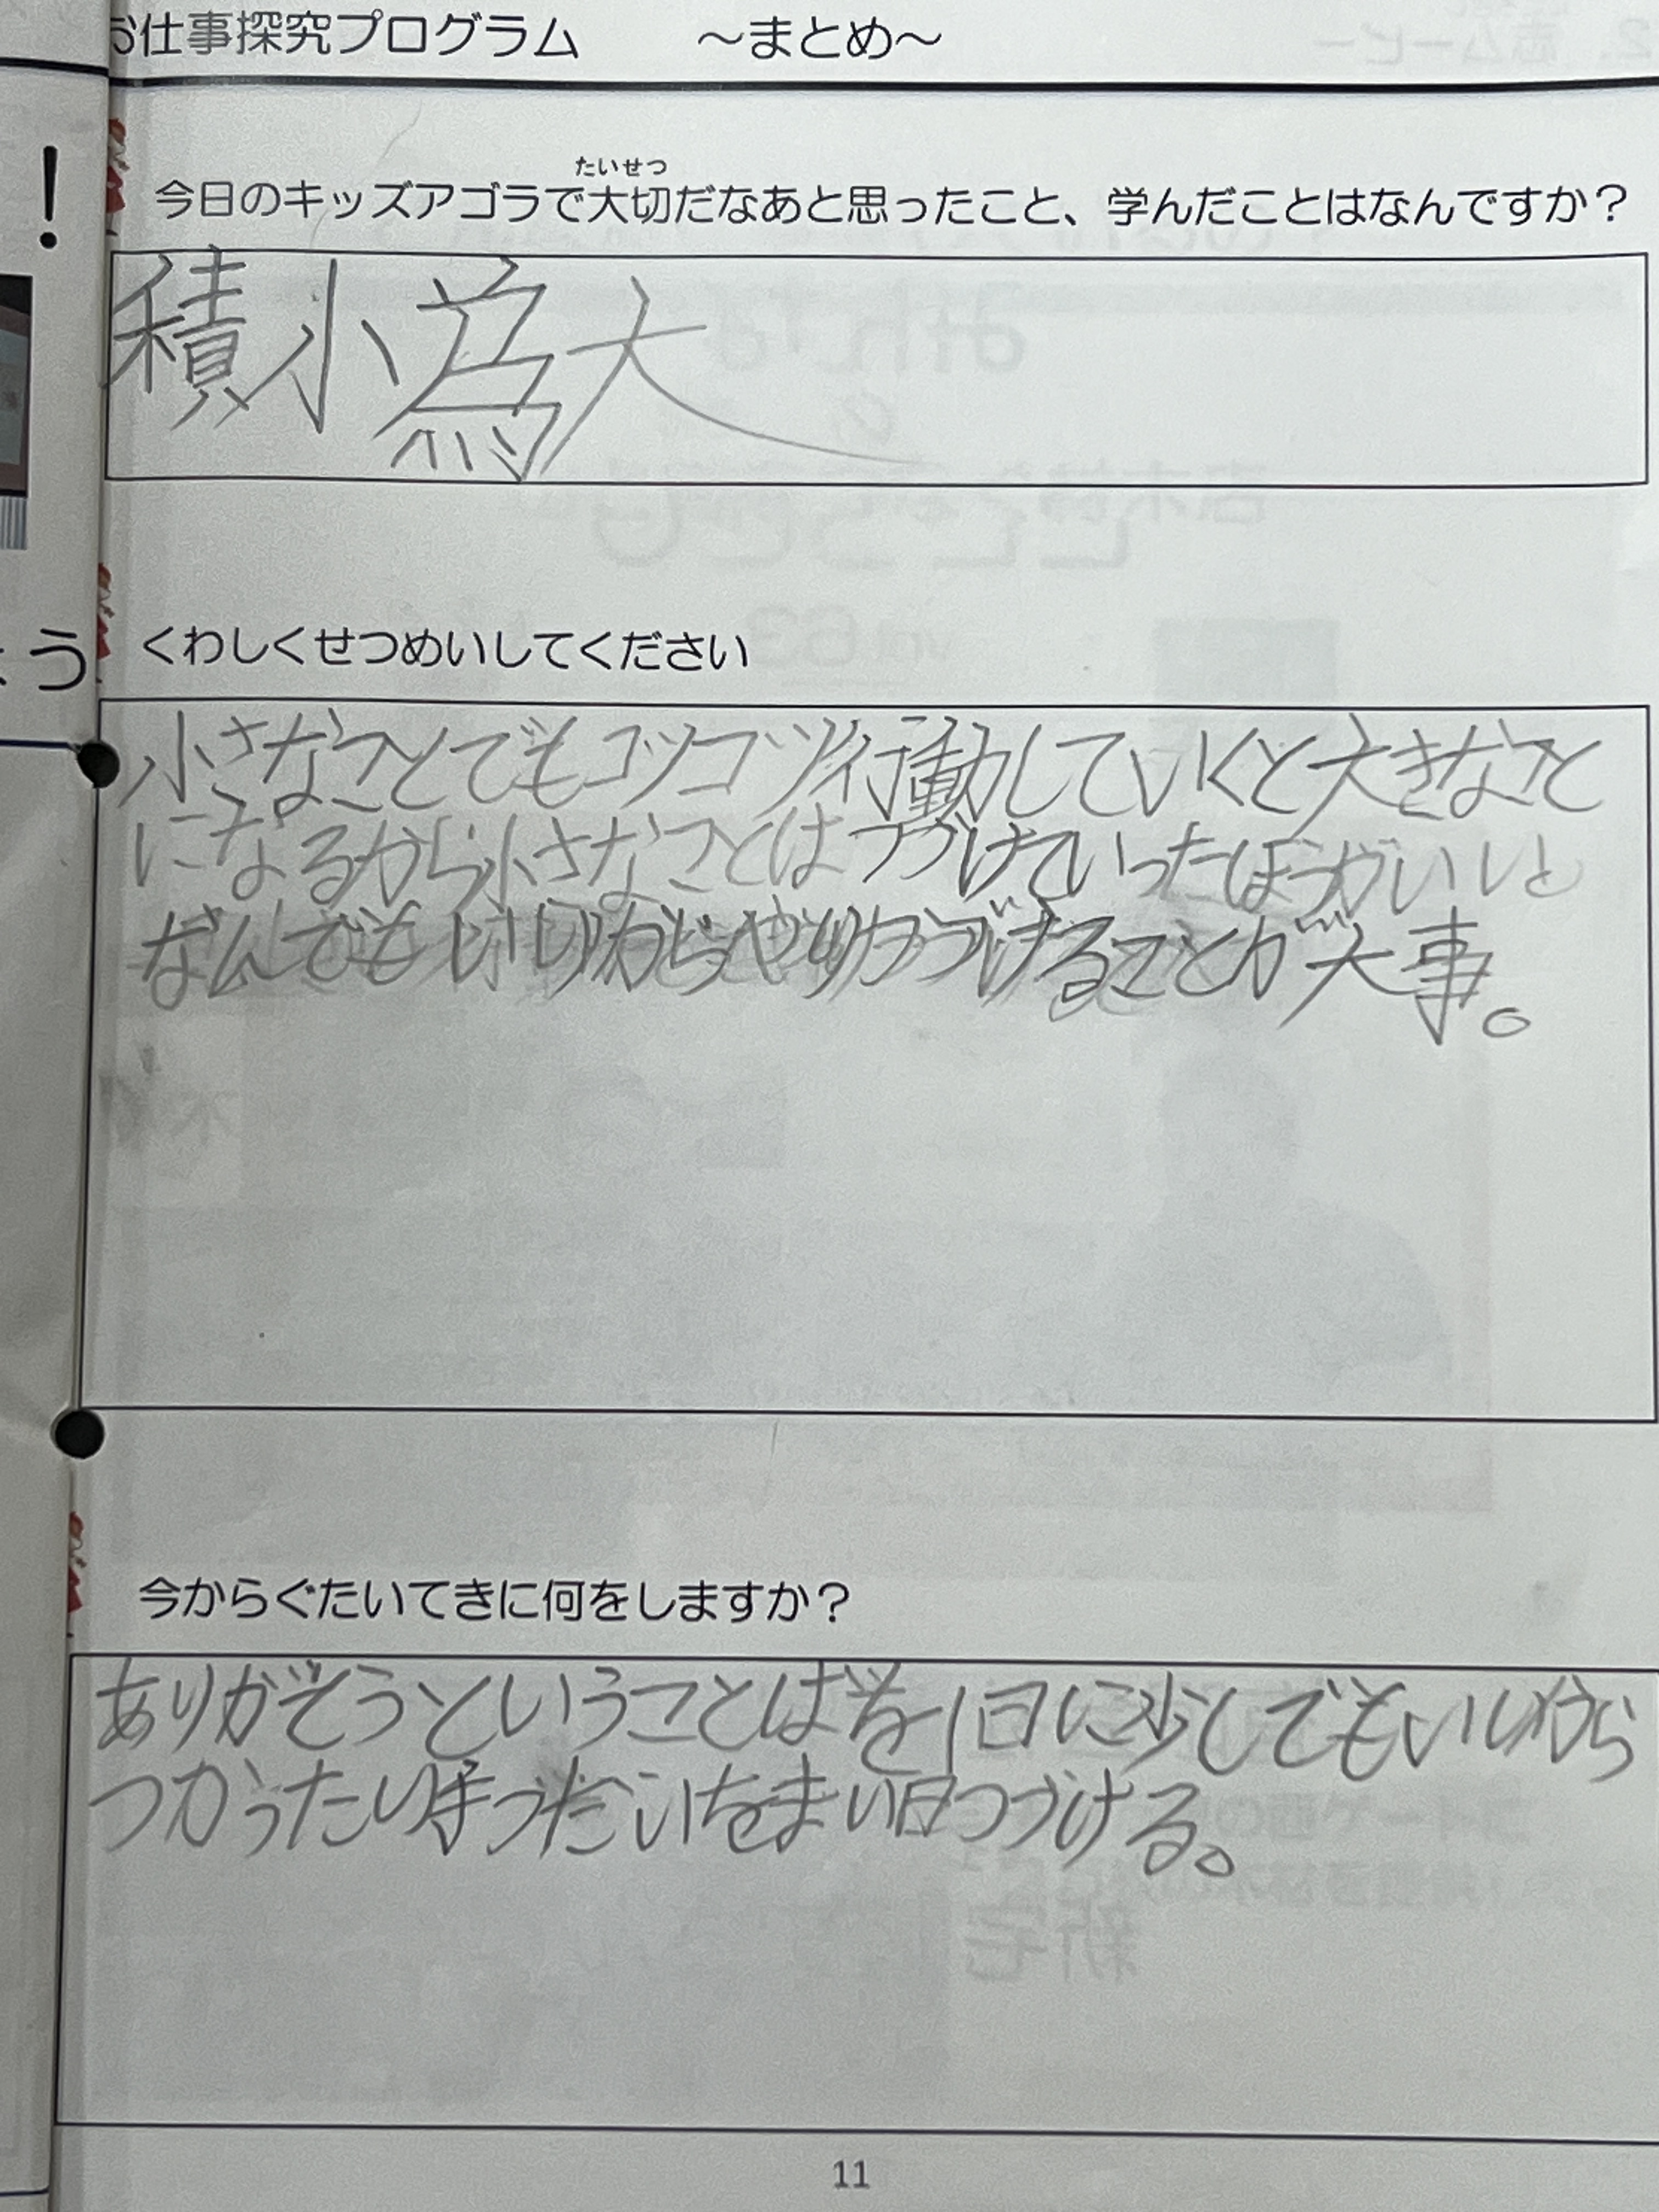 お仕事探究プログラム　～まとめ～
！
たいせつ
今日のキッズアゴラで大切だなあと思ったこと、学んだことはなんですか？
積小為大
ょう
くわしくせつめいしてください
小さなことでもコツコツ行動していくと大きなこと
になるから小さなことはつづけていったほうがいいと
なんでもいいからやりつづけることが大事。
今からぐたいてきに何をしますか？
ありがとうということばを1日に少しでもいいから
つかうたり手つだいをまい日つづける。
11